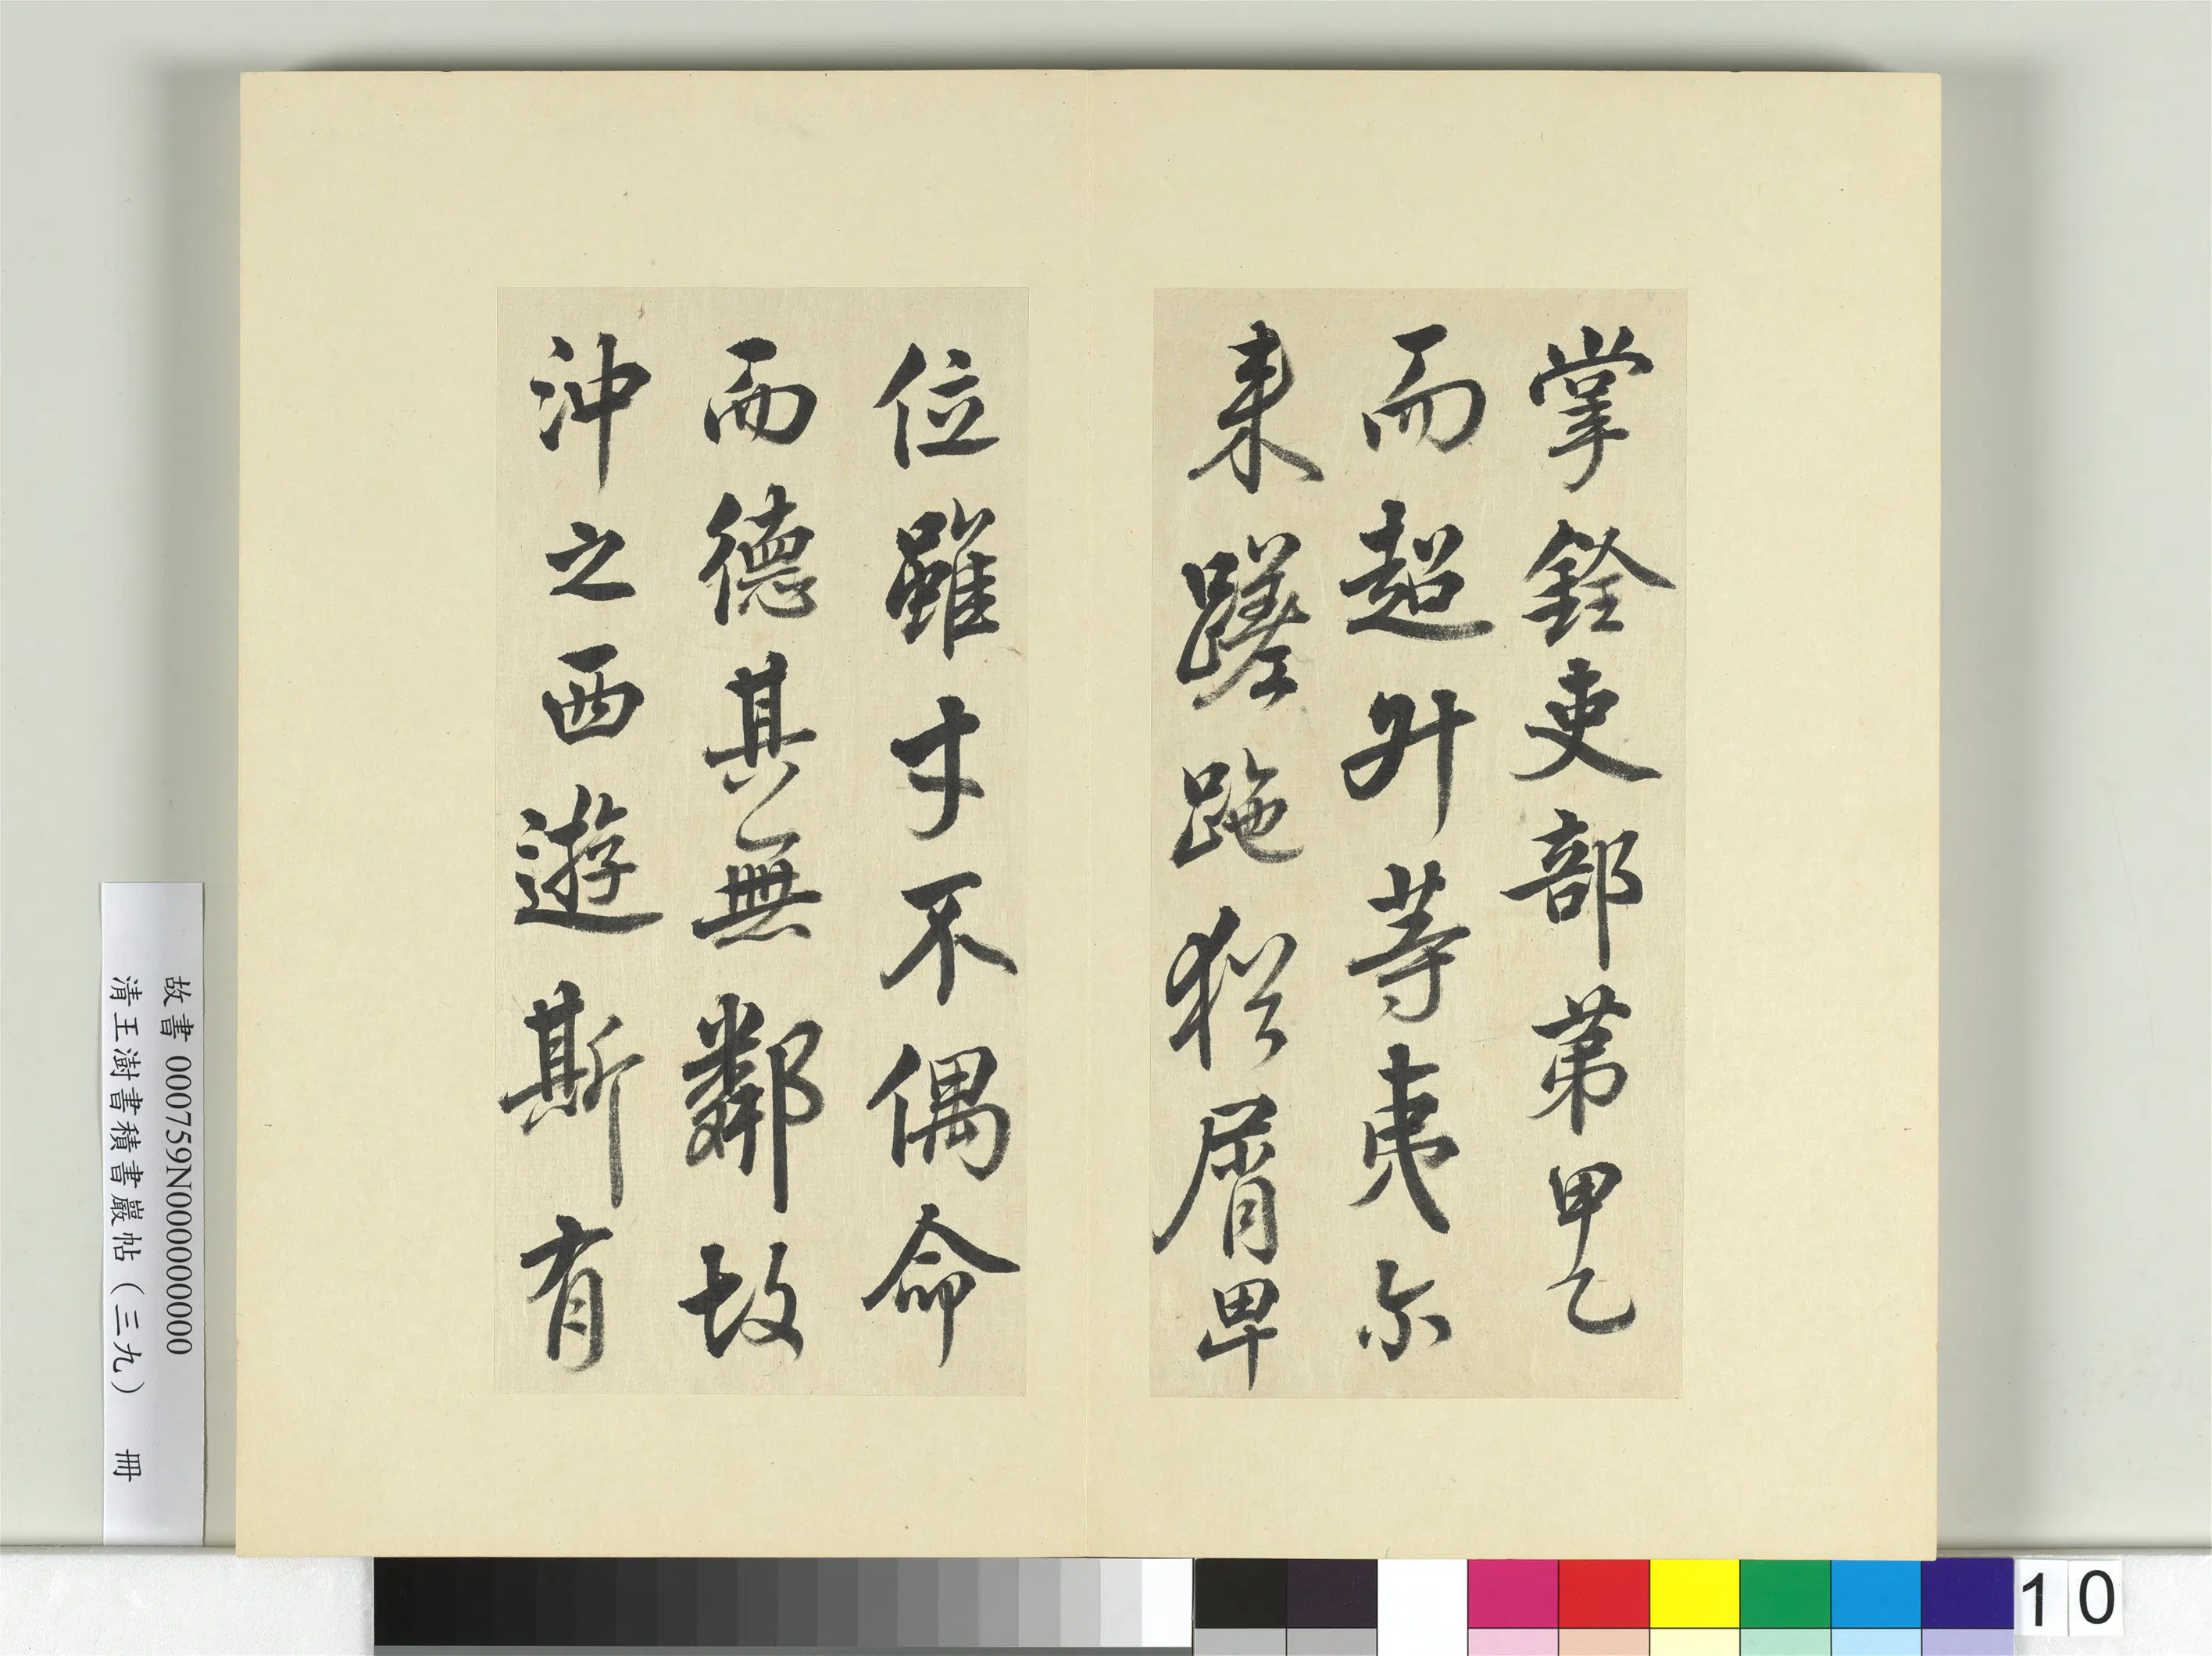 掌銓吏部第甲乙
而超升等夷尔
来蹉跎猶屑卑
位雖才不偶命
而德其無鄰故
沖之西遊斯有
故書 000759N000000000
清王澍書積書巖帖（三九） 冊
10